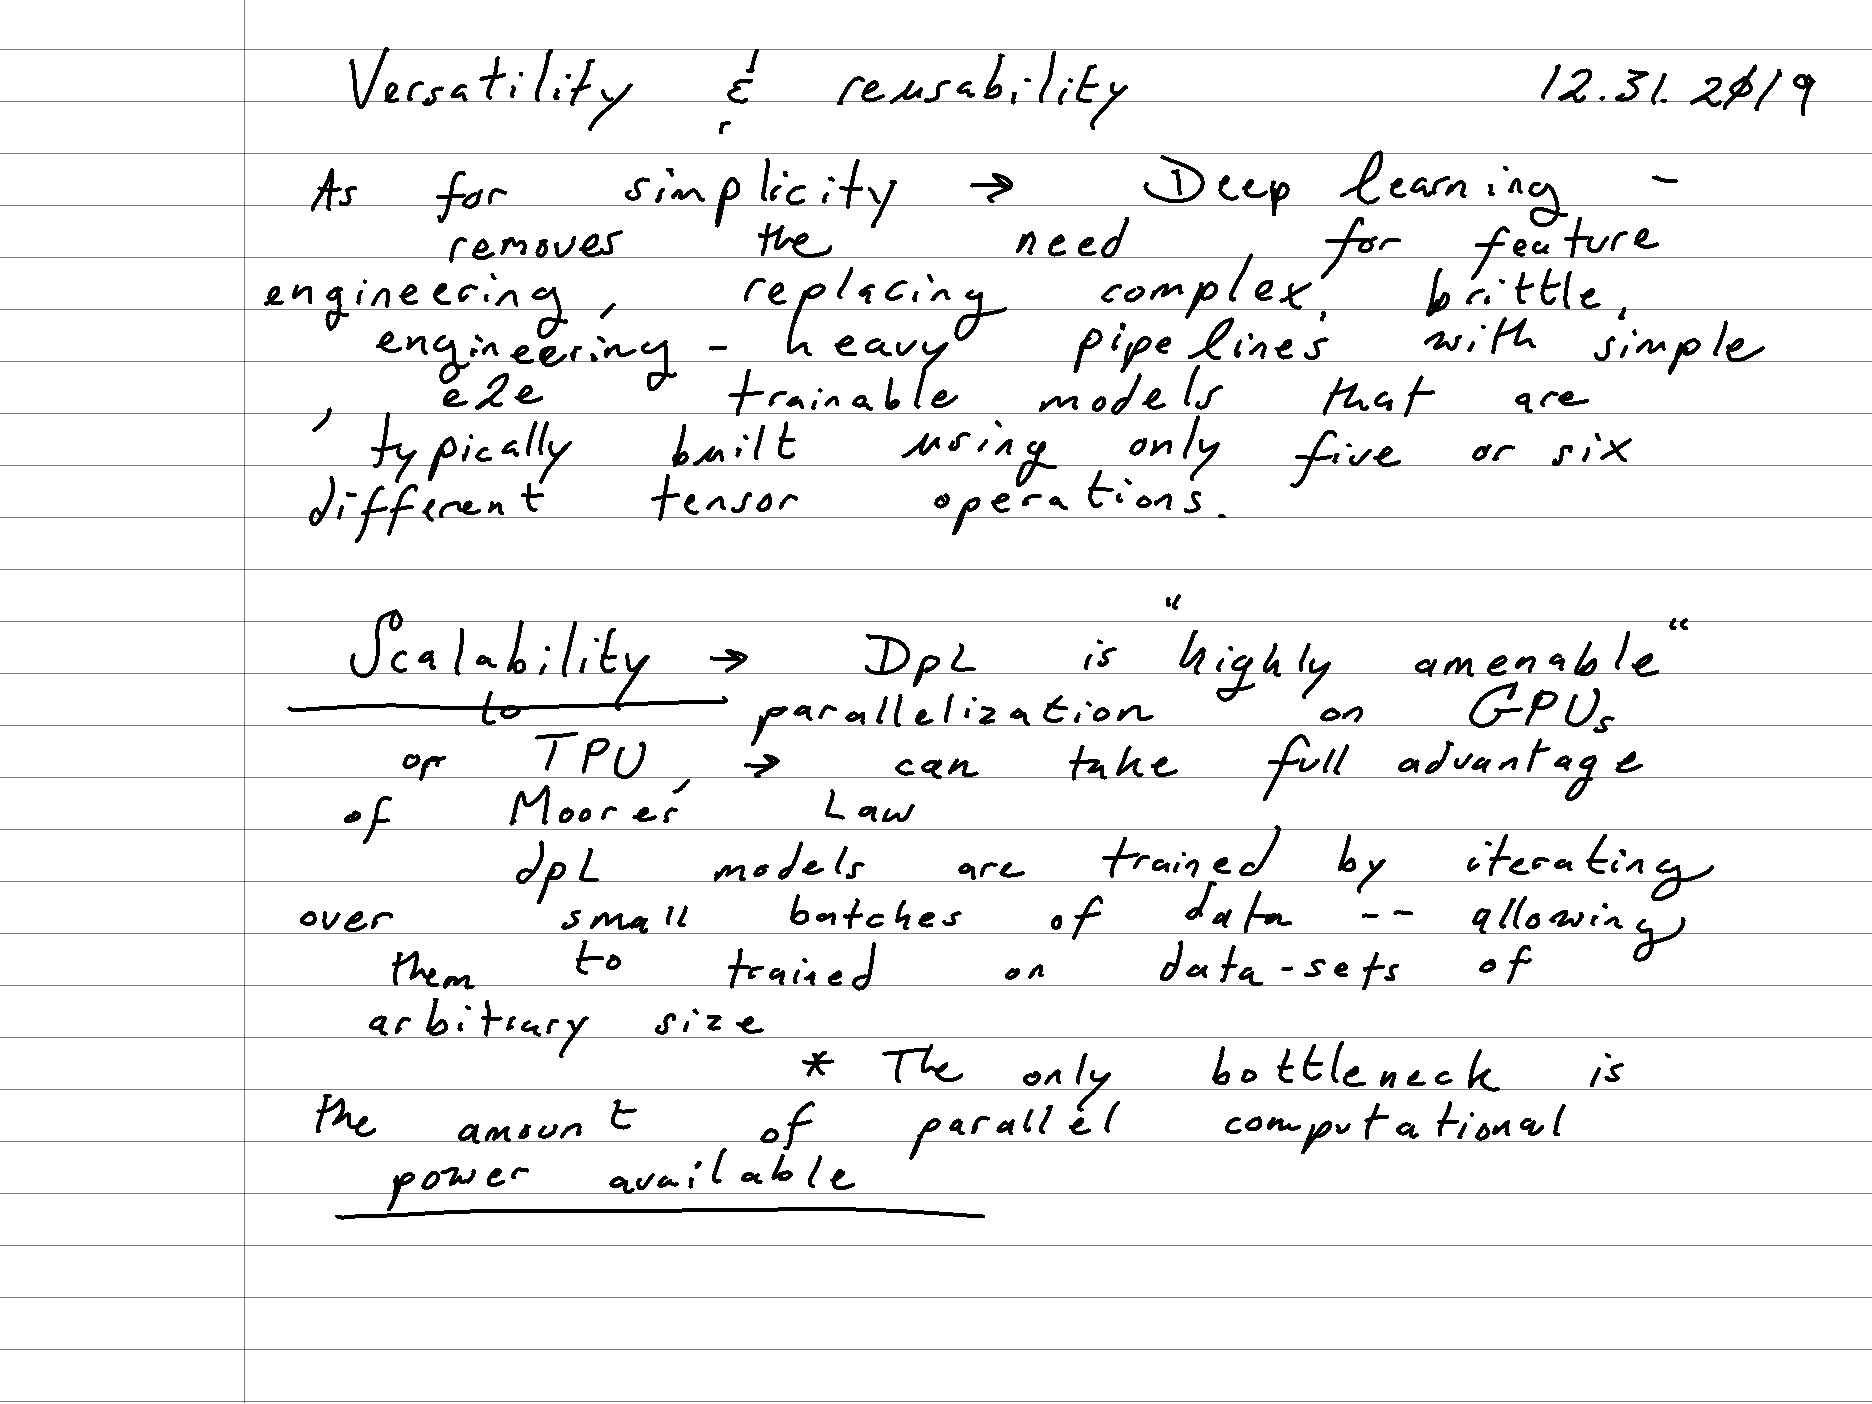 Versatility & reusability 12.31.2019
As for simplicity → Deep learning -
removes the need for feature
engineering, replacing complex, brittle,
engineering-heavy pipelines with simple
, e2e trainable models that are
typically built using only five or six
different tensor operations.
Scalability → DpL is "highly amenable"
to parallelization on GPUs
or TPU, → can take full advantage
of Moore's Law
dpL models are trained by iterating
over small batches of data -- allowing
them to trained on data-sets of
arbitrary size
* The only bottleneck is
the amount of parallel computational
power available